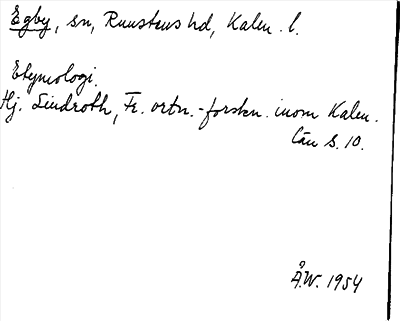 Egby, sn, Runstens hd, Kalm. l.
Etymologi.
Hj. Lindroth, Fr. ortn.-forskn. inom Kalm.
län s. 10.
Å.W. 1954